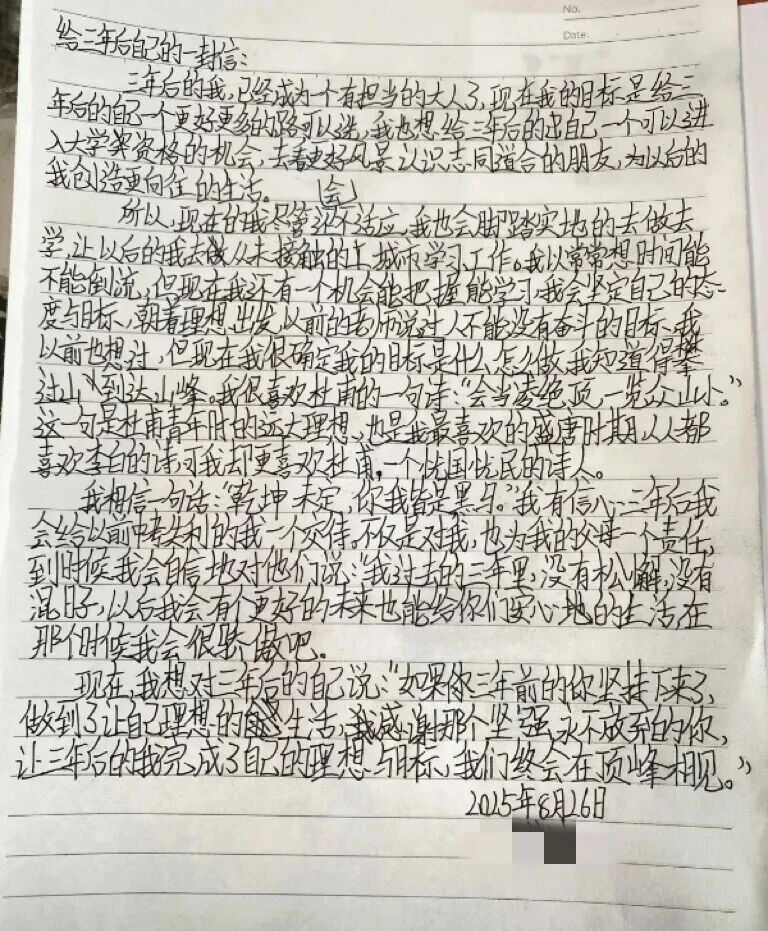 No.
Date.
给三年后自己的一封信：
三年后的我，已经成为一个有担当的大人了，现在我的目标是给三
年后的自己一个更好更多的路可以选，我也想给三年后的自己一个可以进
入大学资格的机会，去看更好风景认识志同道合的朋友，为以后的
我创造更向往的生活。
会
所以，现在的我尽管还不适应，我也会脚踏实地的去做去
学，让以后的我去做从未接触的城市学习工作。我以常常想时间能
不能倒流，但现在我还有一个机会能把握能学习我会坚定自己的态
度与目标，朝着理想出发，以前的老师说过人不能没有奋斗的目标，我
以前也想过，但现在我很确定我的目标是什么，怎么做，我知道得攀
过山，到达山峰。我很喜欢杜甫的一句诗：“会当凌绝顶，一览众山小。”
这一句是杜甫青年时的远大理想，也是我最喜欢的盛唐时期，人人都
喜欢李白的诗，可我却更喜欢杜甫，一个忧国忧民的诗人。
我相信一句话：“乾坤未定，你我皆是黑马。”我有信心三年后我
会给以前中考失利的我一个交待。不仅是对我，也为我的父母一个责任，
到时候我会自信地对他们说：“我过去的三年里，没有松懈，没有
混日子，以后我会有个更好的未来也能给你们安心地的生活，在
那个时候我会很骄傲吧。
现在，我想对三年后的自己说：“如果你三年前的你坚持下来了，
做到了让自己理想的生活，我感谢那个坚强，永不放弃的你，
让三年后的我完成了自己的理想与目标，我们终会在顶峰相见。”
2025年8月26日